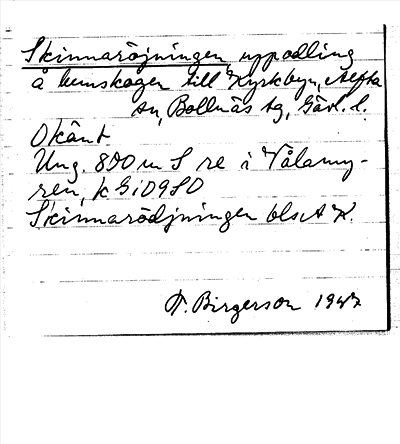 Skinnaröjningen, uppodling
å hemskogen till Kyrkbyn, Alfta
sn, Bollnäs tg, Gävl. l.
Okänt
Ung. 800 m S re i Vålamy-
ren, k G:i09SO
Skinnarödjningen bls A K.
T. Birgerson 1947